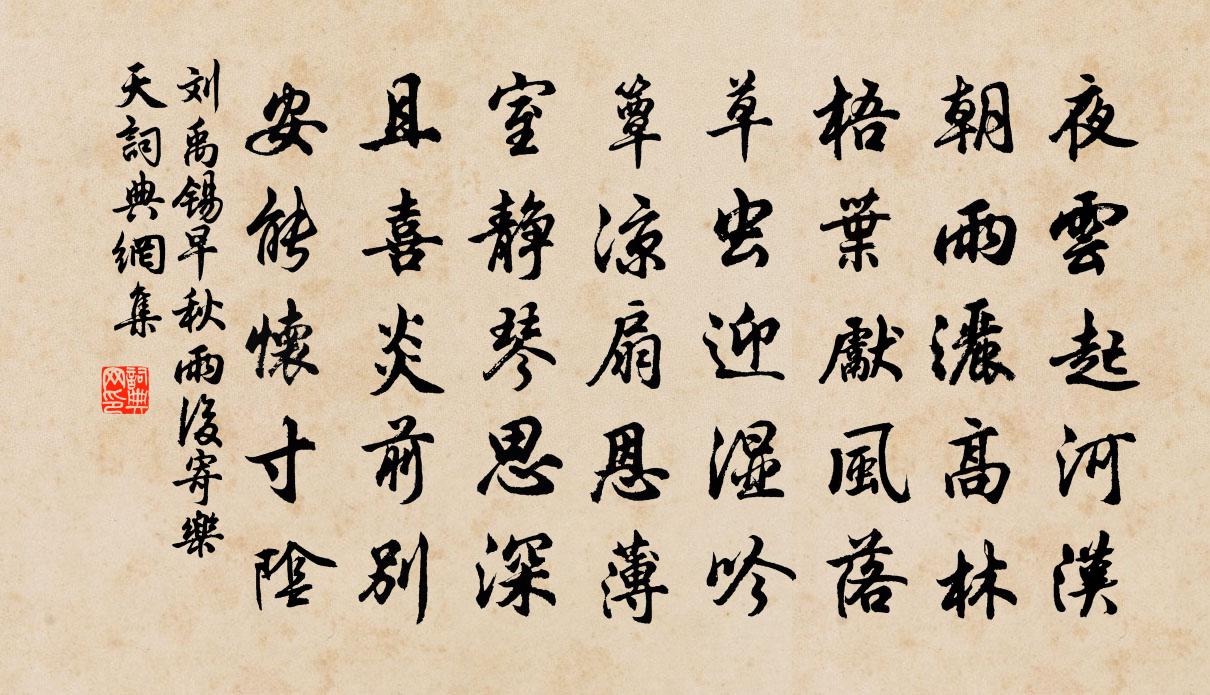 夜雲起河漢
朝雨灑高林
梧葉獻風落
草虫迎湿吟
簟凉扇恩薄
室静琴思深
且喜炎前别
安能懷寸陰
刘禹锡早秋雨後寄樂
天詞典網集
詞典网印